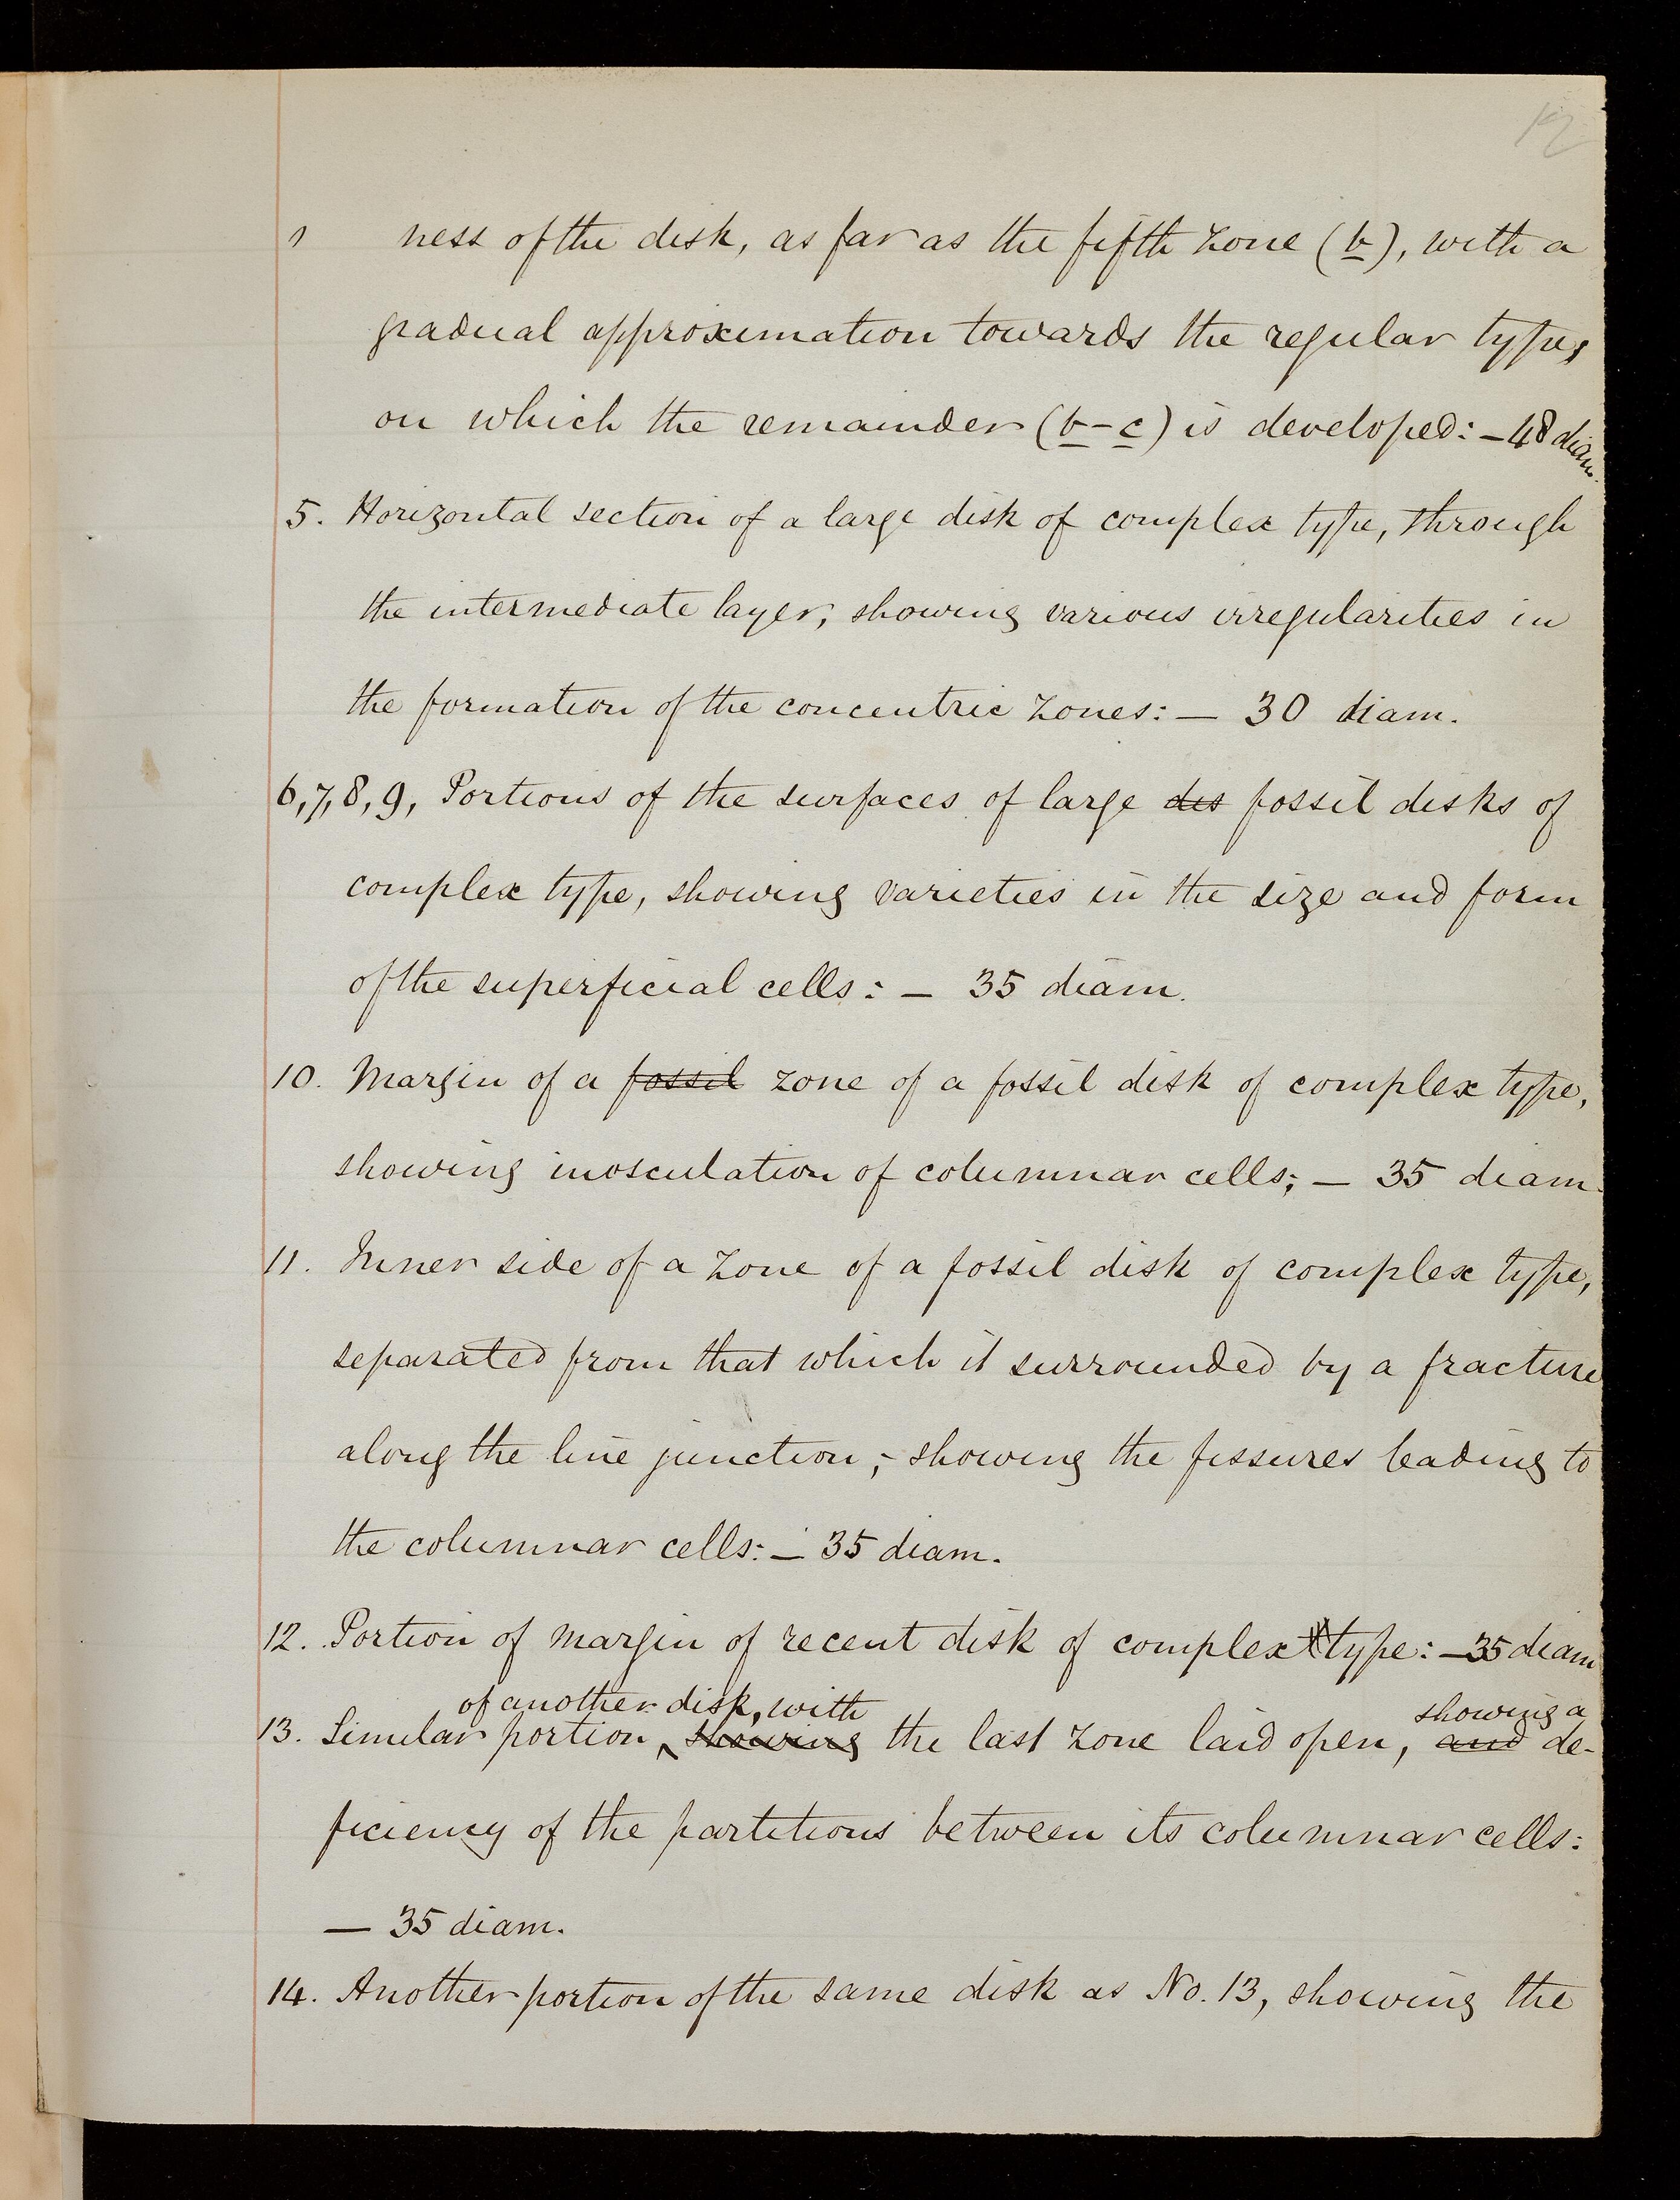 12
ness of the disk, as far as the fifth zone (b), with a
gradual approximation towards the regular type,
on which the remainder (b–c) is developed: – 48 diam.
5. Horizontal section of a large disk of complex type, through
the intermediate layer, showing various irregularities in
the formation of the concentric zones: – 30 diam.
6, 7, 8, 9, Portions of the surfaces of large dis fossil disks of
complex type, showing varieties in the size and form
of the superficial cells: – 35 diam.
10. Margin of a fossil zone of a fossil disk of complex type,
showing inosculation of columnar cells; – 35 diam.
11. Inner side of a zone of a fossil disk of complex type,
separated from that which it surrounded by a fracture
along the line junction; – showing the fissures leading to
the columnar cells: – 35 diam.
12. Portion of margin of recent disk of complex type: – 35 diam
of another disk, with showing a
13. Similar portion showing the last zone laid open, and de-
ficiency of the partitions between its columnar cells:
– 35 diam.
14. Another portion of the same disk as No. 13, showing the